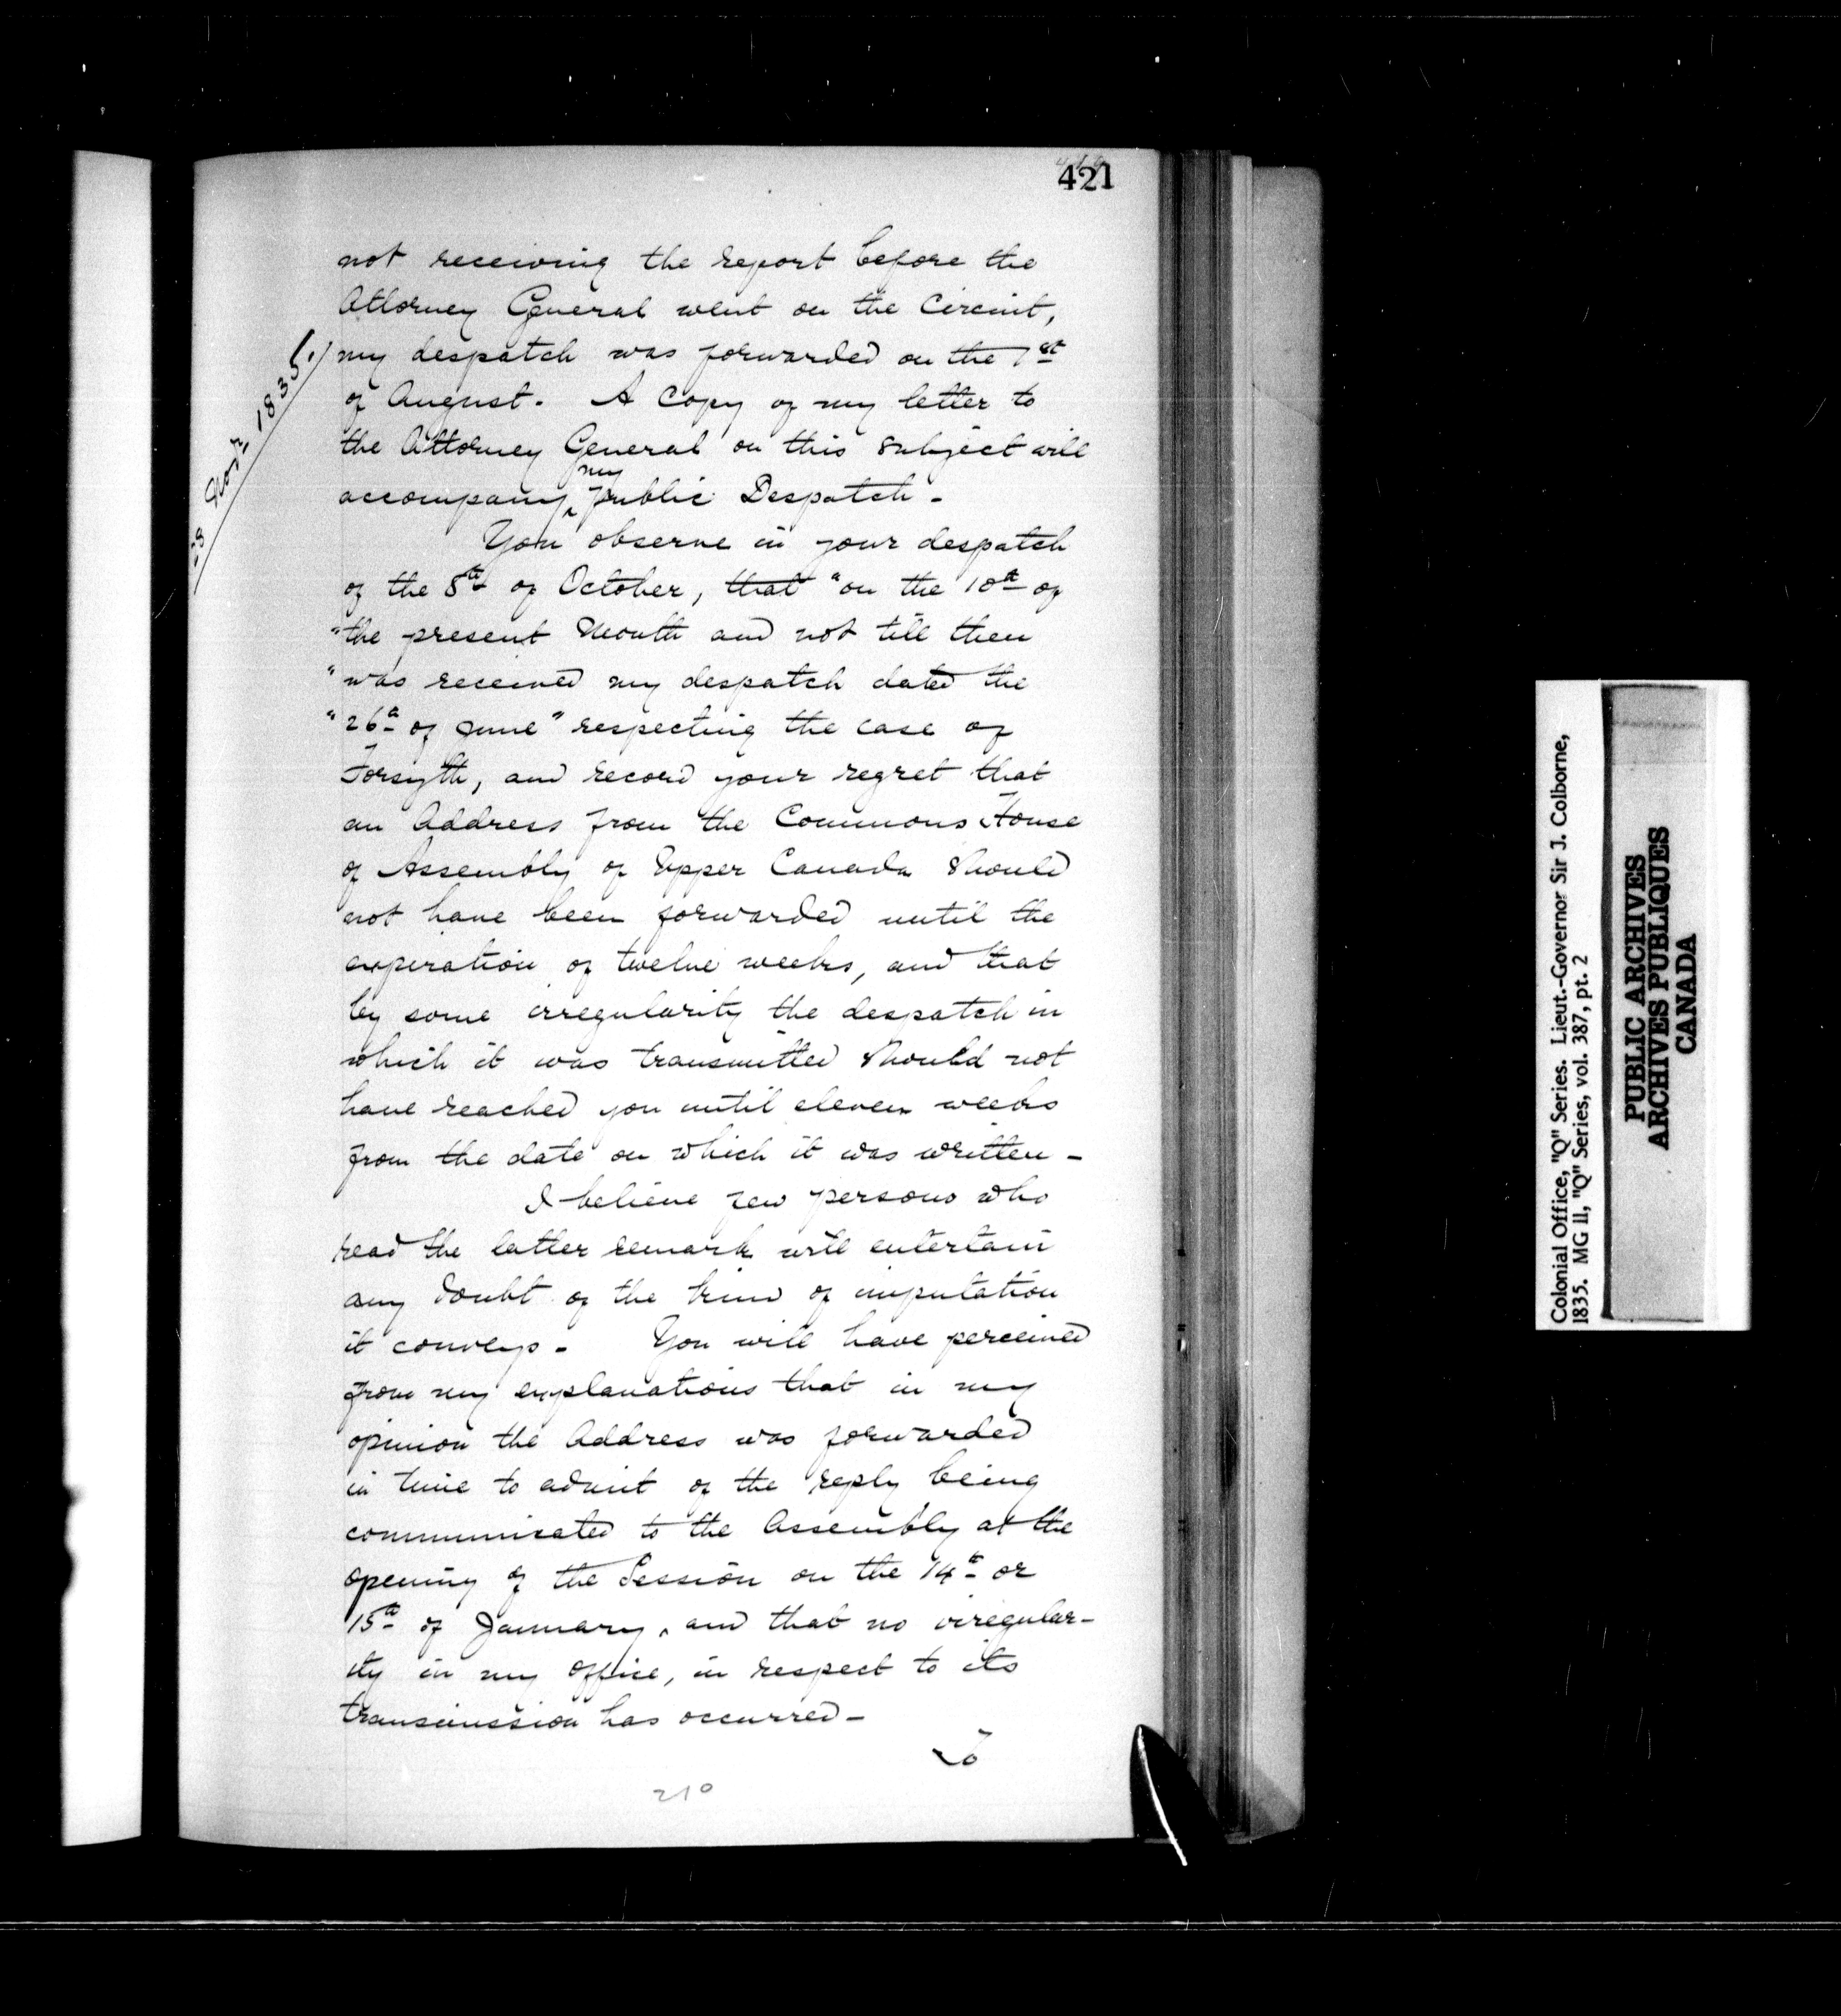 421
not receiving the report before the
Attorney General went on the Circuit,
(.) my despatch was forwarded on the 1st
of August. A Copy of my letter to
the Attorney General on this subject will
accompany my public Despatch -
28 Novr 1835
You observe in your despatch
of the 8th of October, that "on the 10th of
"the present Month and not till then
"was received my despatch dated the
"26th of June" respecting the case of
Forsyth, and record your regret that
an Address from the Commons House
of Assembly of Upper Canada should
not have been forwarded until the
expiration of twelve weeks, and that
by some irregularity the despatch in
which it was transmitted should not
have reached you until eleven weeks
from the date on which it was written -
I believe few persons who
read the latter remark will entertain
any doubt of the kind of imputation
it conveys - You will have perceived
from my explanations that in my
opinion the Address was forwarded
in time to admit of the reply being
communicated to the Assembly at the
opening of the Session on the 14th or
15th of January, and that no irregular-
ity in my Office, in respect to its
transmission has occurred -
To
210
Colonial Office, "Q" Series. Lieut.-Governor Sir J. Colborne,
1835. MG 11, "Q" Series, vol. 387, pt. 2
PUBLIC ARCHIVES
ARCHIVES PUBLIQUES
CANADA